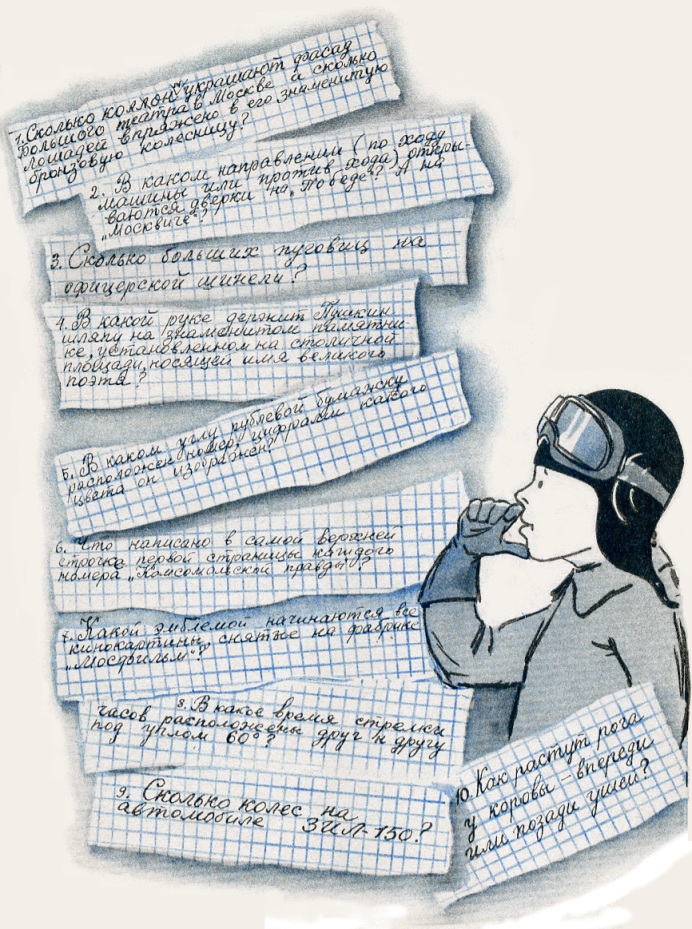 1. Сколько колонн украшают фасад
Большого театра в Москве и сколько
лошадей впряжено в его знаменитую
бронзовую колесницу?
2. В каком направлении (по ходу
машины или против хода) откры-
ваются дверки на „Победе"? А на
„Москвиче"?
3. Сколько больших пуговиц на
офицерской шинели?
4. В какой руке держит Пушкин
шляпу на знаменитом памятни-
ке, установленном на столичной
площади, носящей имя великого
поэта?
5. В каком углу рублевой бумажки
расположен номер, цифрами какого
цвета он изображен?
6. Что написано в самой верхней
строчке первой страницы каждого
номера „Комсомольской правды"?
7. Какой эмблемой начинаются все
кинокартины, снятые на фабрике
„Мосфильм"?
8. В какое время стрелки
часов расположены друг к другу
под углом 60°?
9. Сколько колес на
автомобиле ЗИЛ-150?
10. Как растут рога
у коровы – впереди
или позади ушей?